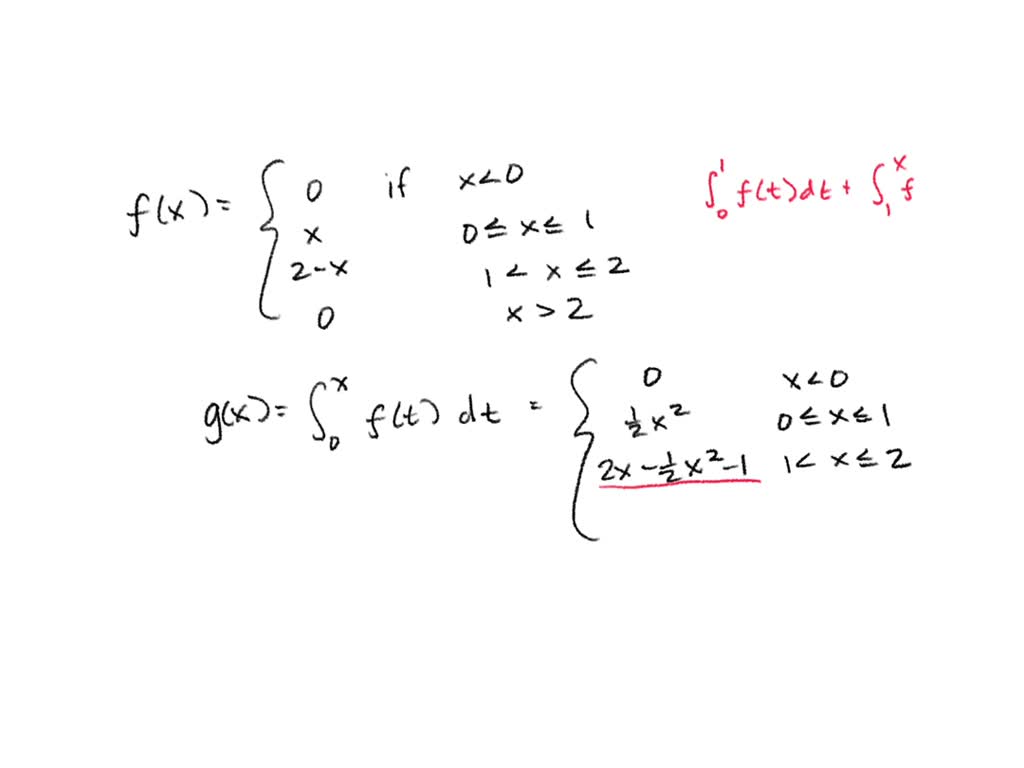 f(x) = { 0 if x<0
x 0 ≤ x ≤ 1
2-x 1 < x ≤ 2
0 x > 2
∫₀¹ f(t) dt + ∫₁ˣ f
g(x) = ∫₀ˣ f(t) dt = { 0 x<0
½x² 0 ≤ x ≤ 1
2x - ½x² - 1 1 < x ≤ 2